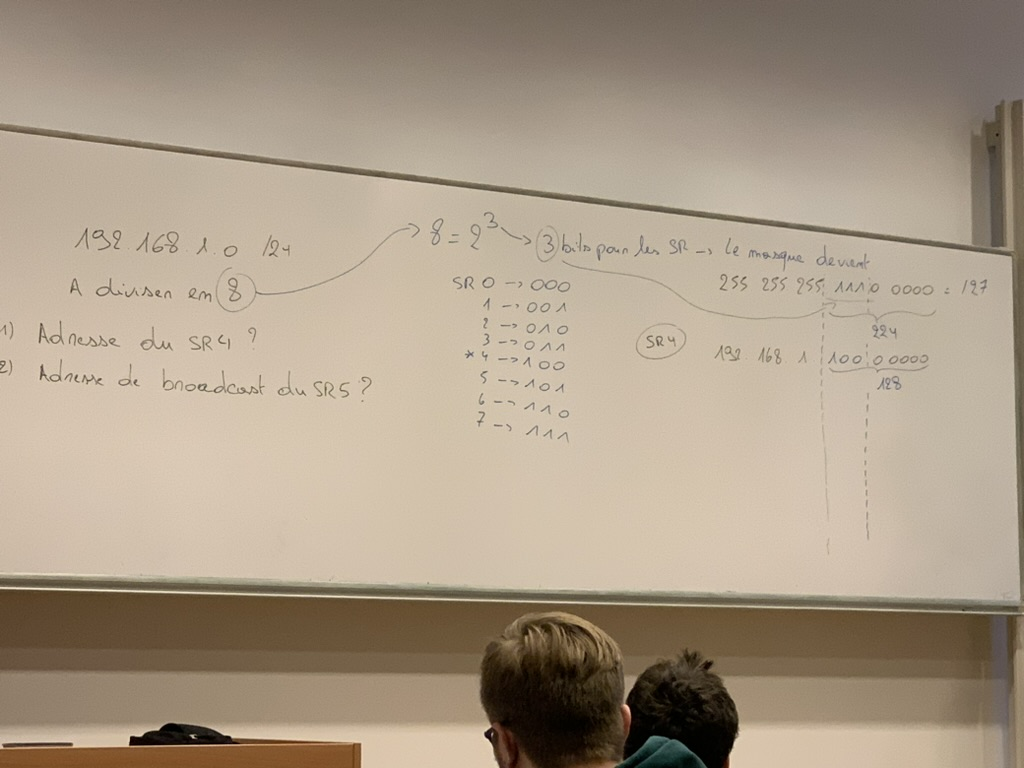 192.168.1.0 /24
A diviser en 8
1) Adresse du SR4 ?
2) Adresse de broadcast du SR5 ?
8 = 2³ → 3 bits pour les SR → Le masque devient
SR 0 → 000
1 → 001
2 → 010
3 → 011
* 4 → 100
5 → 101
6 → 110
7 → 111
255 255 255 1110 0000 = /27
224
SR4
192.168.1 100 00000
128